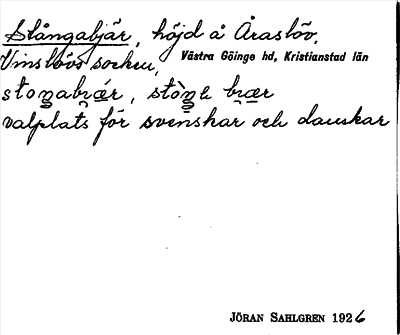 Stångabjär, höjd å Araslöv,
Vinslövs socken, Västra Göinge hd, Kristianstad län
valplats för svenskar och danskar
JÖRAN SAHLGREN 1926